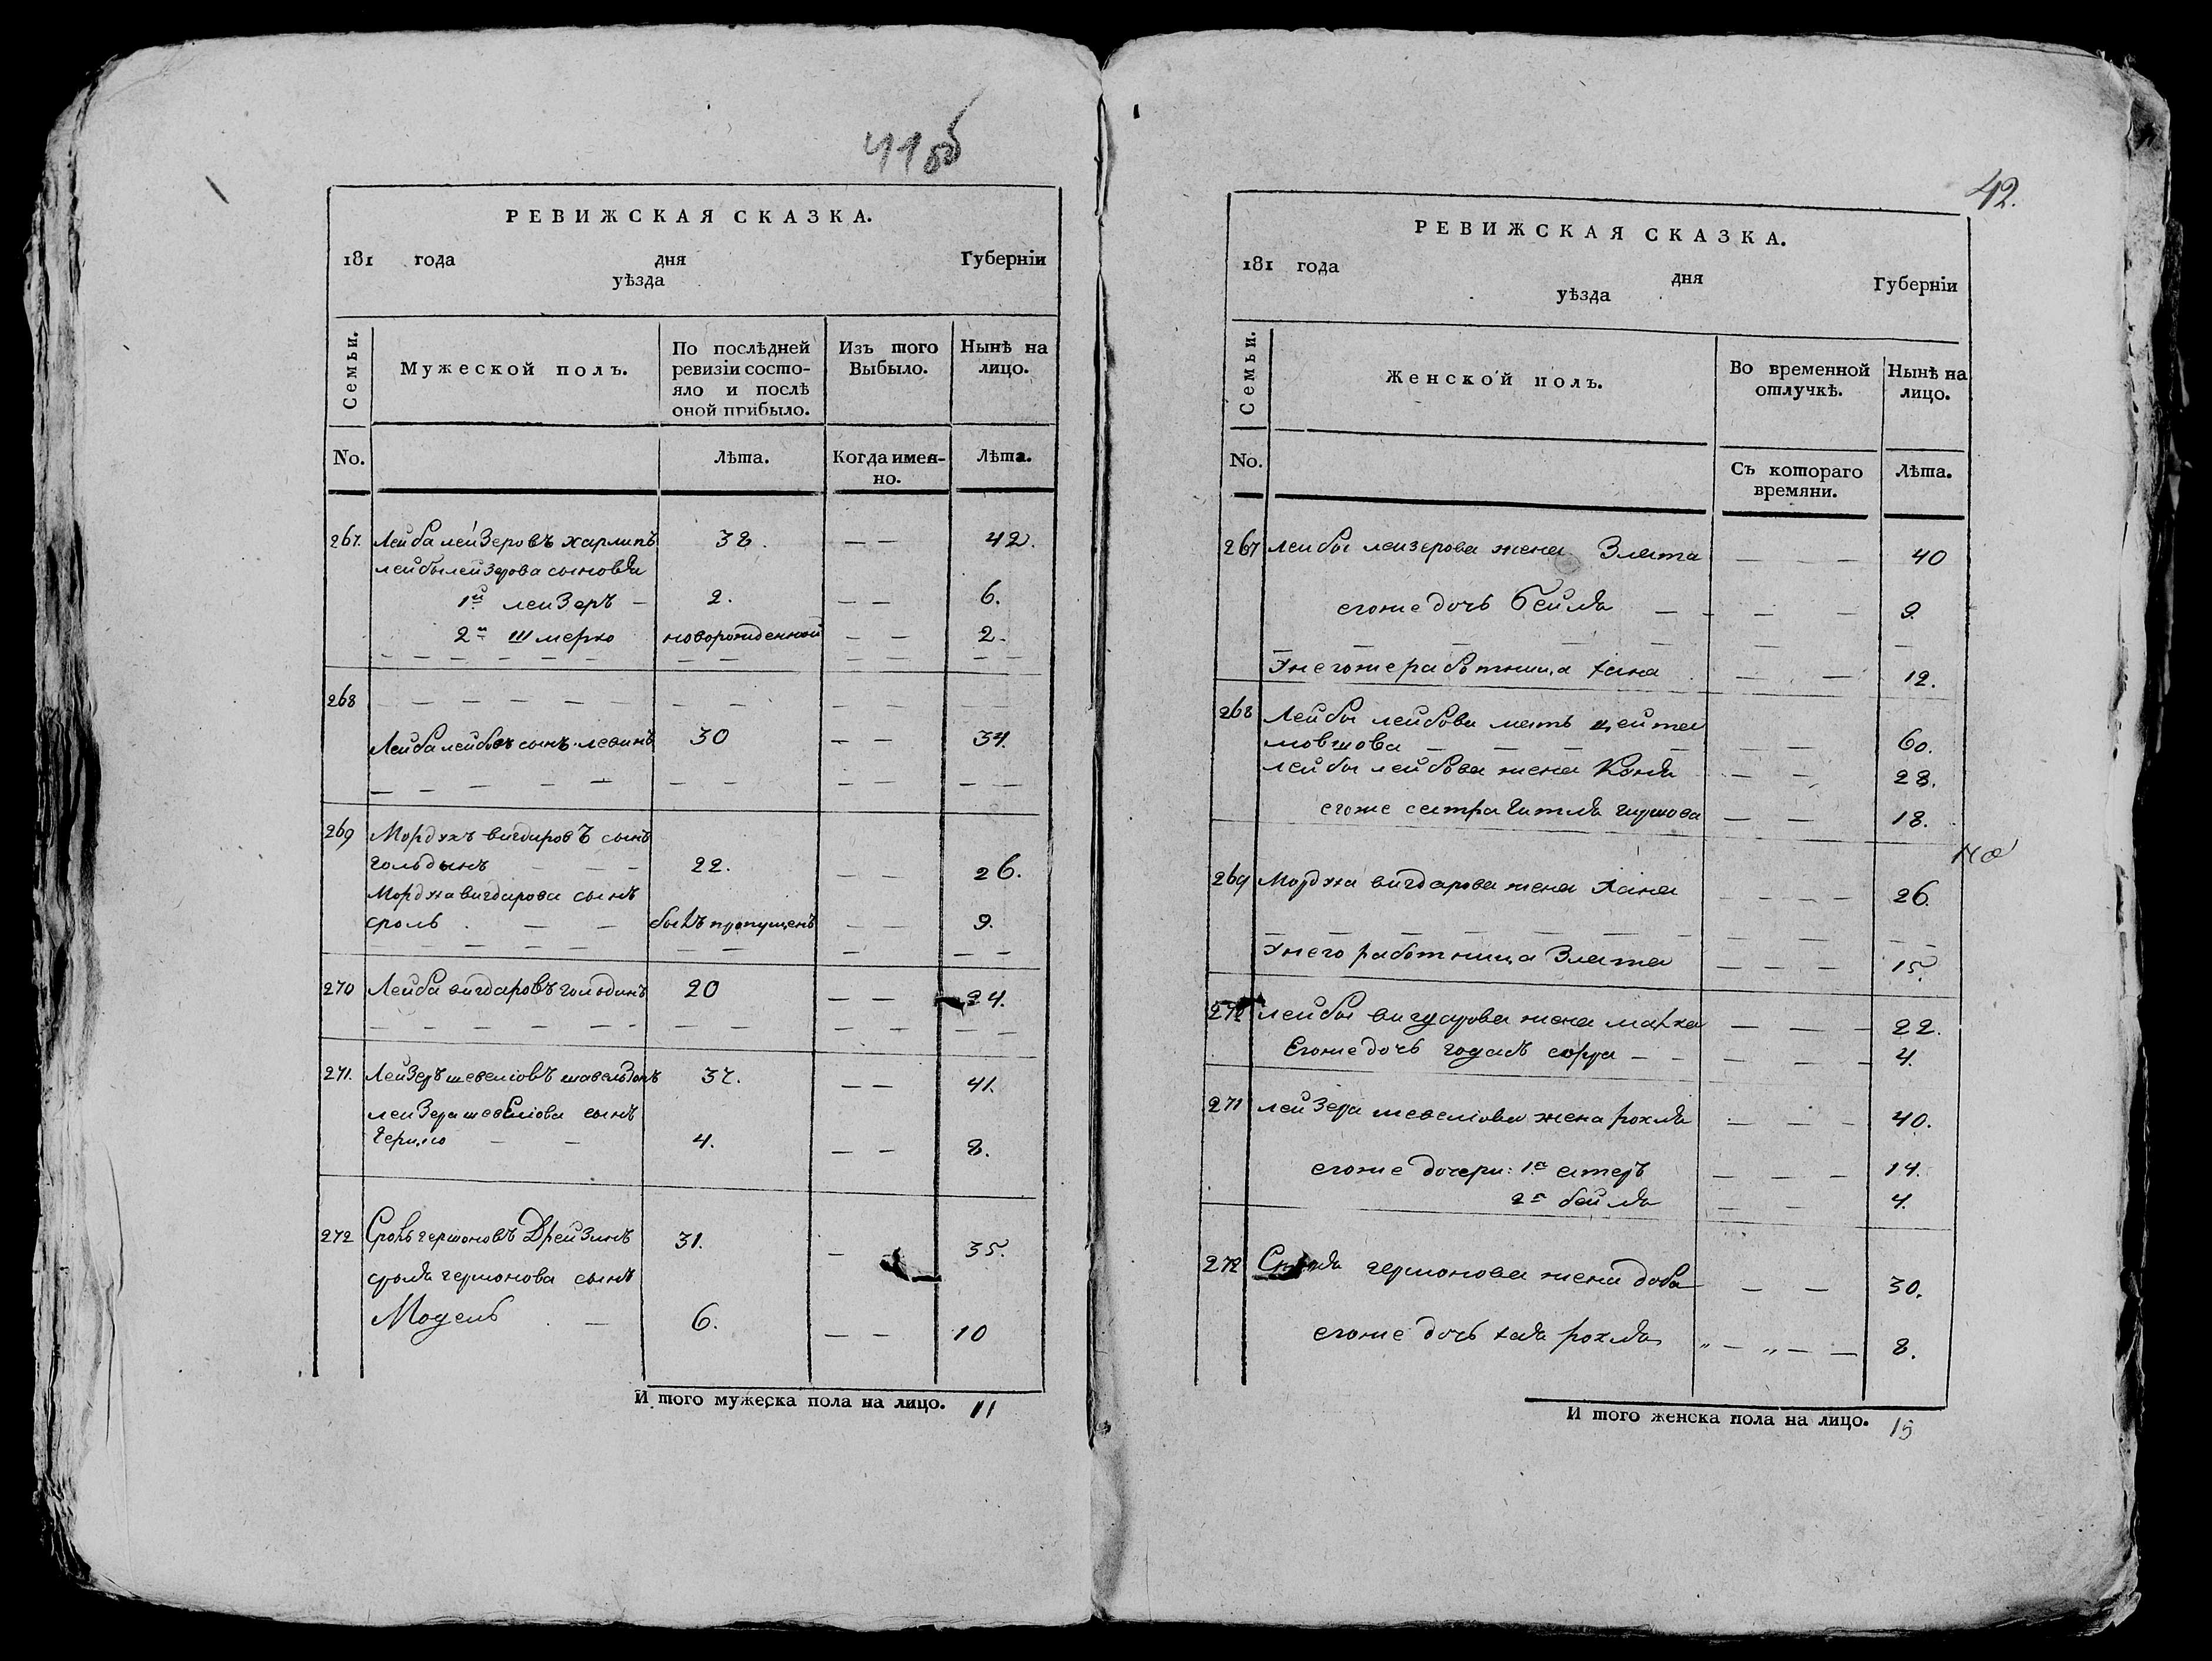 41об
РЕВИЖСКАЯ СКАЗКА.
181 года дня Губерніи
уѣзда
Семьи. Мужеской полъ. По послѣдней ревизіи состояло и послѣ оной прибыло. Изъ того Выбыло. Нынѣ на лицо.
No. Лѣта. Когда именно. Лѣта.
267. Лейба лейзеровъ харликъ 38. — — 42.
лейбы лейзерова сыновья
1й лейзеръ — 2. — — 6.
2й Шмерко новорожденной — — 2.
268
Лейба лейбовъ сынъ левинъ 30 — — 34.
269 Мордухъ вигдировъ сынъ
гольдынъ — — 22. — — 26.
Мордуха вигдарова сынъ
сроль — — былъ пропущенъ — — 9.
270 Лейба вигдаровъ гольдинъ 20 — — 24.
271. Лейзеръ шевеліовъ 37. — — 41.
лейзера шевеліова сынъ
герцко — — 4. — — 8.
272 Сроль гершоновъ Дрейзинъ 31. — 35.
сроля гершонова сынъ
— 6. — — 10
И того мужеска пола на лицо. 11
42.
РЕВИЖСКАЯ СКАЗКА.
181 года дня Губерніи
уѣзда
Семьи. Женской полъ. Во временной отлучкѣ. Нынѣ на лицо.
No. Съ котораго времяни. Лѣта.
267 лейбы лейзерова жена Злата — — — 40
егоже дочь бейля — — — — 9.
Унегоже работница хана — — 12.
268 Лейбы лейбова мать цейта
мовшова — — — — — — 60.
лейбы лейбова жена — — 28.
егоже сестра гитля — — 18.
269 Мордуха вигдарова жена хана — — — — 26.
Унего работница Злата — — — 15.
270 лейбы вигдарова жена — — — 22.
Егоже дочь сорра — — — — — 4.
271 лейзера шевеліова жена рохля — — — 40.
егоже дочери: 1я естеръ — — — 14.
2я бейля — — 4.
272 гершонова жена доба — — 30.
егоже дочь хая рохля — — — 8.
И того женска пола на лицо. 15